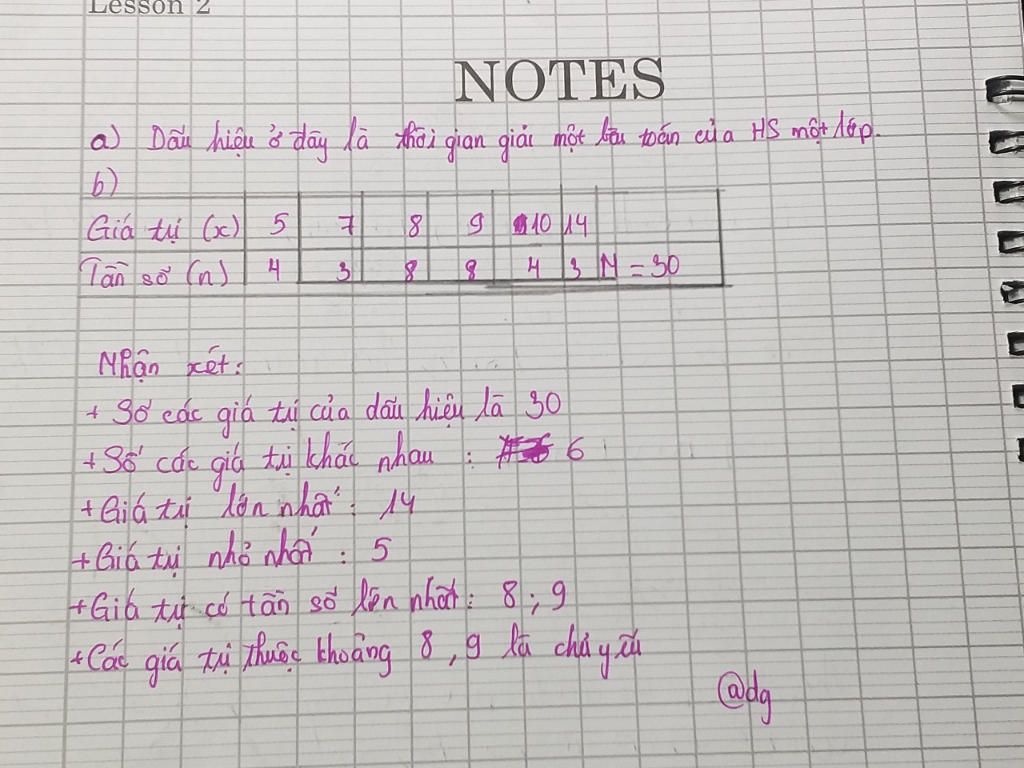 Lesson 2
NOTES
a) Dấu hiệu ở đây là thời gian giải một bài toán của HS một lớp.
b)
Giá trị (x) 5 7 8 9 10 14
Tần số (n) 4 3 8 8 4 3 N = 30
Nhận xét:
+ Số các giá trị của dấu hiệu là 30
+ Số các giá trị khác nhau : 6
+ Giá trị lớn nhất : 14
+ Giá trị nhỏ nhất : 5
+ Giá trị có tần số lớn nhất : 8 ; 9
+ Các giá trị thuộc khoảng 8 , 9 là chủ yếu
@dg